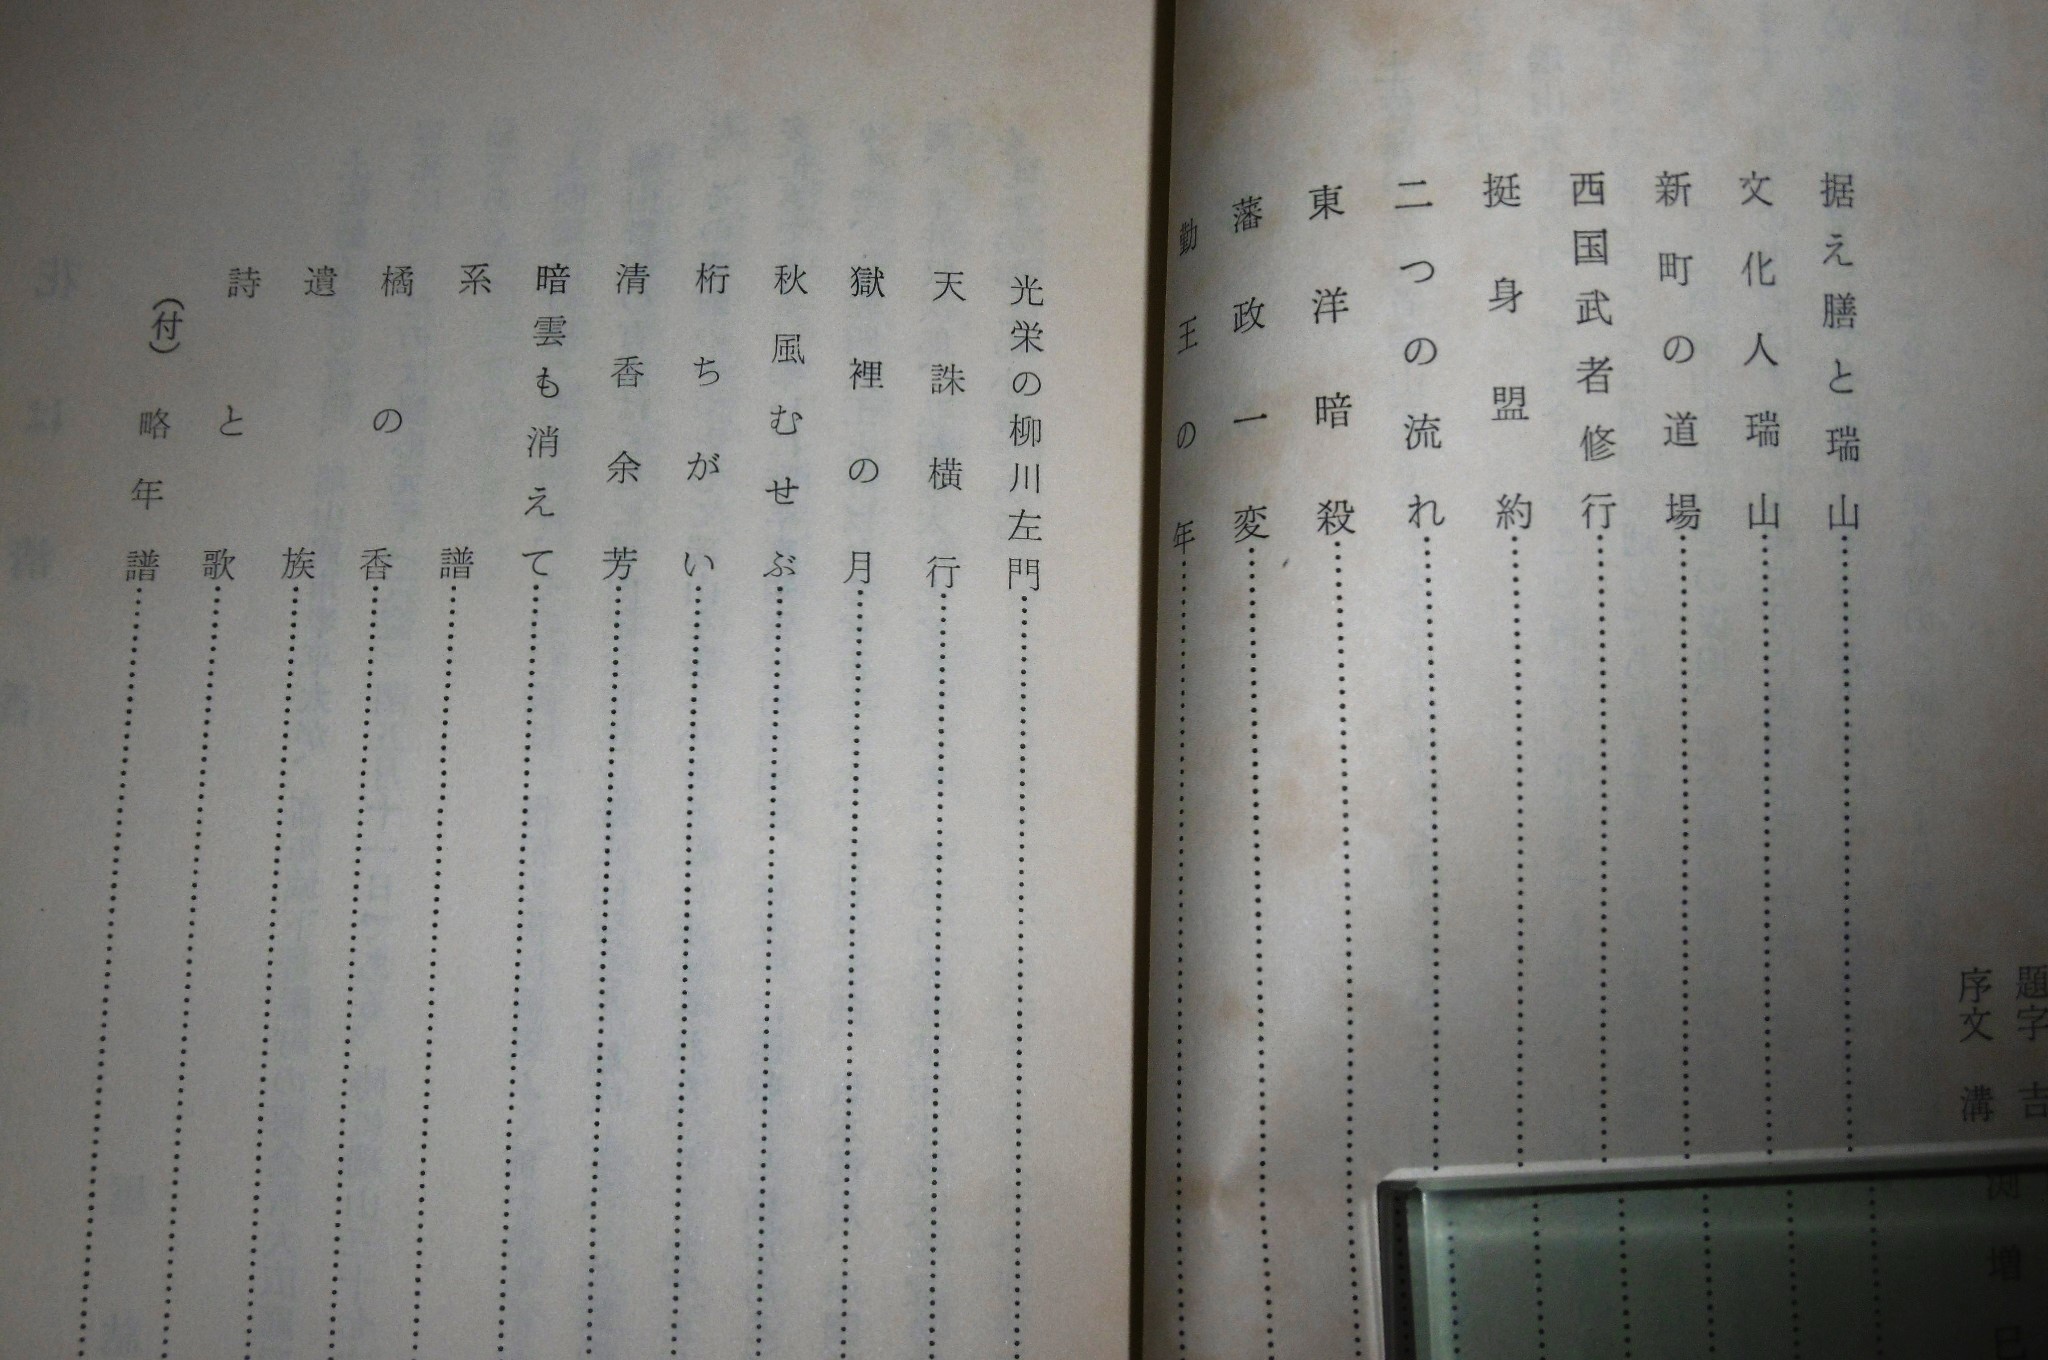 題字 吉
序文 溝渕増巳
据え膳と瑞山
文化人瑞山
新町の道場
西国武者修行
挺身盟約
二つの流れ
東洋暗殺
藩政一変
勤王の年
光栄の柳川左門
天誅横行
獄裡の月
秋風むせぶ
桁ちがい
清香余芳
暗雲も消えて
系譜
橘の香
遺族
詩と歌
(付)略年譜